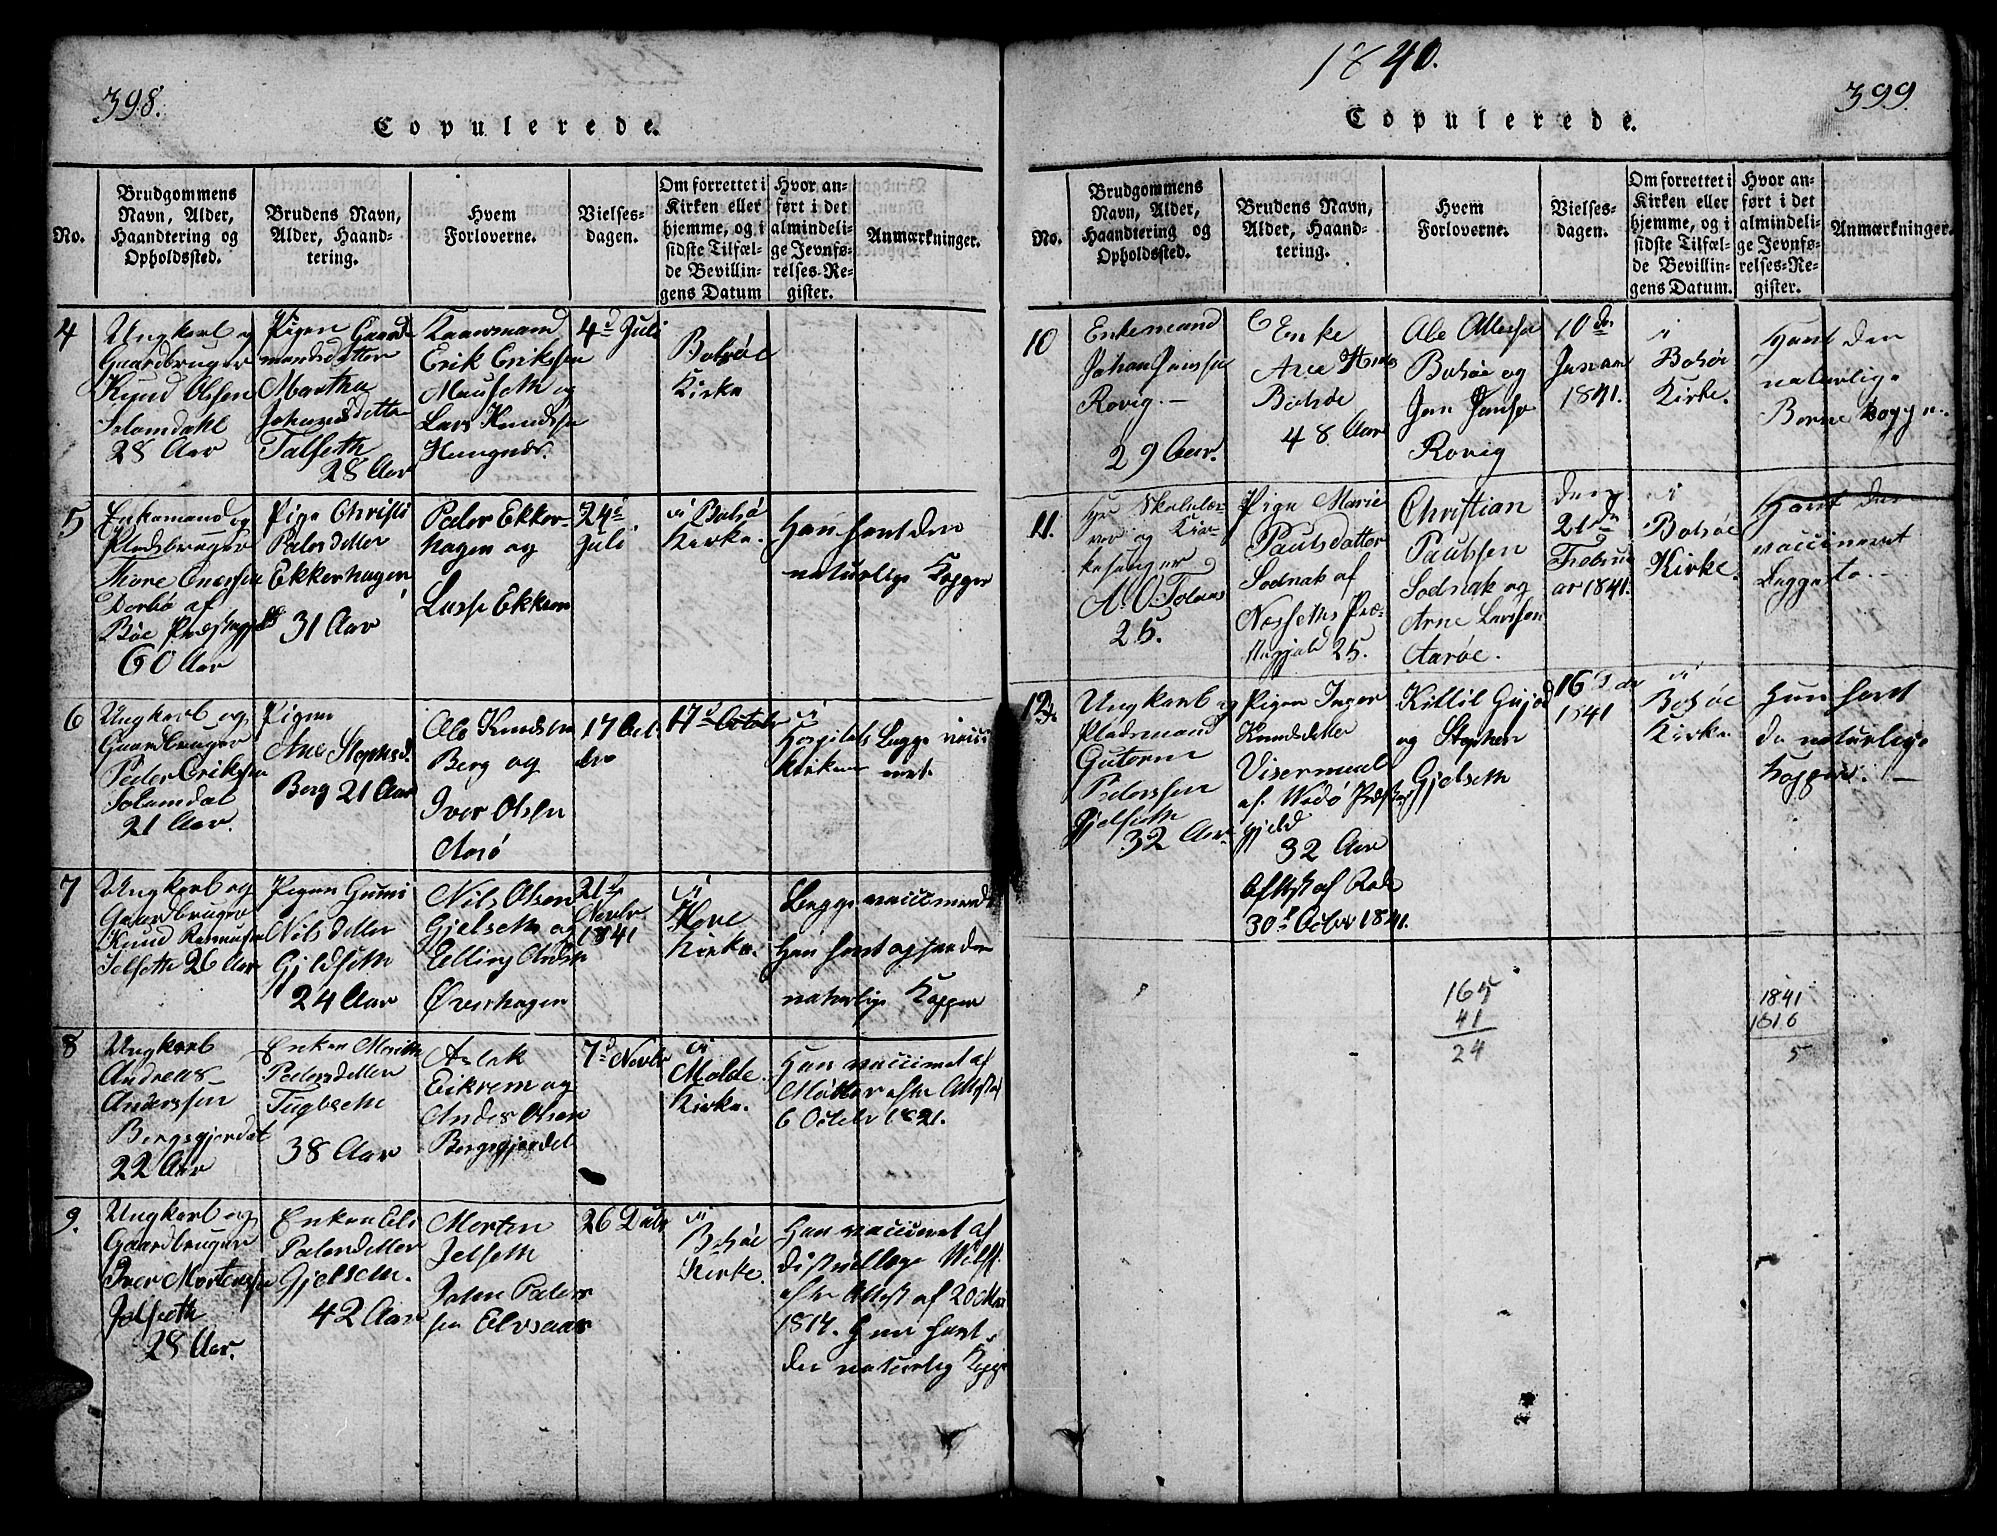 398.
Copulerede.
No.
Brudgommens
Navn, Alder,
Haandtering og
Opholdssted.
Brudens Navn,
Alder, Haand-
tering.
Hvem
Forloverne.
Vielses-
dagen.
Om forrettet i
Kirken eller
hjemme, og i
sidste Tilfæl-
de Bevillin-
gens Datum
Hvor an-
ført i det
almindeli-
ge Jevnfø-
relses-Re-
gister.
Anmærkninger.
4
Ungkarl og
Gaardbruger
Knud Olsen
Solemdahl
28 Aar
Pigen Gaard-
mandsdatter
Martha
Johansdatter
Talseth
28 Aar
Erik Eriksen
Mauseth og
Lars Knudsen
4d Juli
Bolsøe
Kirke
5
Enkemand og
Pladsbruger
af
Bøe Præstegjeld
60 Aar
Pige Christi
Pedersdatter
Ekkerhagen
31 Aar
Peder Ekker-
hagen og
Lasse Ekkrem
24d
Juli
i Bolsø
Kirke.
Han havt den
naturlige Kopper
6
Ungkarl og
Gaardbruger
Peder Eriksen
Solemdal
21 Aar.
Pigen
Ane Stephsd.
Berg 21 Aar
Ole Knudsen
Berg og
Iver Olsen
Arø
17 Oct-
br
17d Octobr
i
Hospitals
Kirken
Begge vacci
net.
7
Ungkarl og
Gaardbruger
Knud Rasmusen
Jelseth 26 Aar
Pigen Guni
Nilsdatter
Gjelseth
24 Aar
Nils Olsen
Gjelseth og
Elling Andr
Øverhagen
21d
Novbr
1841
i
Kleve
Kirke.
Begge vaccinerede
Han havt og saa den
naturlige Kopper
8
Ungkarl
Andreas
Anderssen
Bergsgjerdet
22 Aar
Enken Marith
Pedersdatter
Fuglseth
38 Aar
Aslak
Eikrem og
Andes Olsen
Bergsgjerdet
7d Novbr
i
Molde
Kirke.
Han vaccinet af
Møller efter Attest af
6 Octobr 1821.
9.
Ungkarl og
Gaardbruger
Iver Mortensen
Jelseth
28 Aar.
Enken Eli
Pedersdatter
Gjelseth.
42 Aar
Morten
Jelseth
John Peder
sen Elvsaas
26 Decbr
i
Bolsøe
Kirke.
Han vaccineret af
efter Attest af 20 Mai
1817. Hun havt
den naturlig Kopper
1840.
399.
Copulerede.
No.
Brudgommens
Navn, Alder,
Haandtering og
Opholdssted.
Brudens Navn,
Alder, Haand-
tering.
Hvem
Forloverne.
Vielses-
dagen.
Om forrettet i
Kirken eller
hjemme, og i
sidste Tilfæl-
de Bevillin-
gens Datum.
Hvor an-
ført i det
almindeli-
ge Jevnfø-
relses-Re-
gister.
Anmærkninger.
10
Enkemand
Johan Jansen
Røvig. –
29 Aar.
Enke
Ane
Bolsøe
48 Aar
Ole
Bolsøe og
Jon Jonsen
Røvig
10 den
Januar
1841.
i
Bolsøe
Kirke.
Havt den
naturlige
Børne Kopper.
11.
Skolelæ-
rer og Kir-
kesanger
25.
Pige Marie
Paulsdatter
Sodnak af
Nessets Præ-
stegjeld 25.
Christian
Paulsen
Sodnak og
Arne Larssen
Aarøe.
den
21de
Februar
ar 1841.
i
Bolsøe
Kirke.
Havt den
vaccineret
begge to. –
12.
Ungkarl og
Pladsmand
Gutorm
Pederssen
Gjelseth
32 Aar.
Pigen Inger
Knudsdatter
Visermeal
af Wedø Præste
gjeld
32 Aar
Attest af Rode
30d October 1841.
Kittil
og Stephen
Gjelseth
16
1841
i
Bolsøe
Kirke.
Hun havt
de naturlige
Kopper. –
165
41
24
1841
1816
5